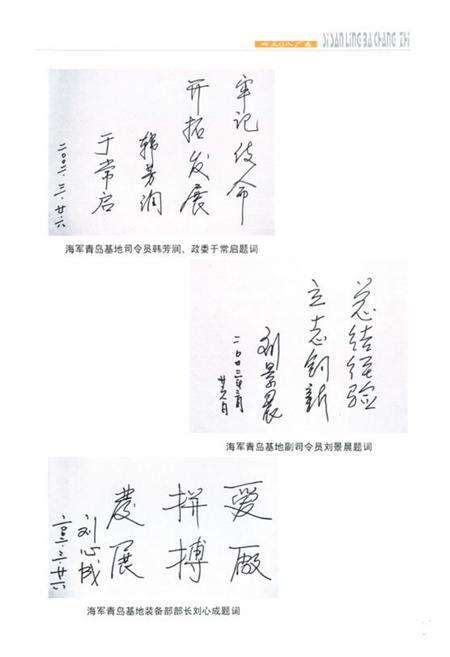 四三0八厂志 SI SAN LING BA CHANG ZHI
牢记使命
开拓发展
韩芳润
于常启
二〇〇二.三.廿六
海军青岛基地司令员韩芳润、政委于常启题词
总结经验
立志创新
刘景晨
二〇〇二年三月
海军青岛基地副司令员刘景晨题词
爱廠
拼搏
發展
刘心成
二〇〇二.三.廿六
海军青岛基地装备部部长刘心成题词